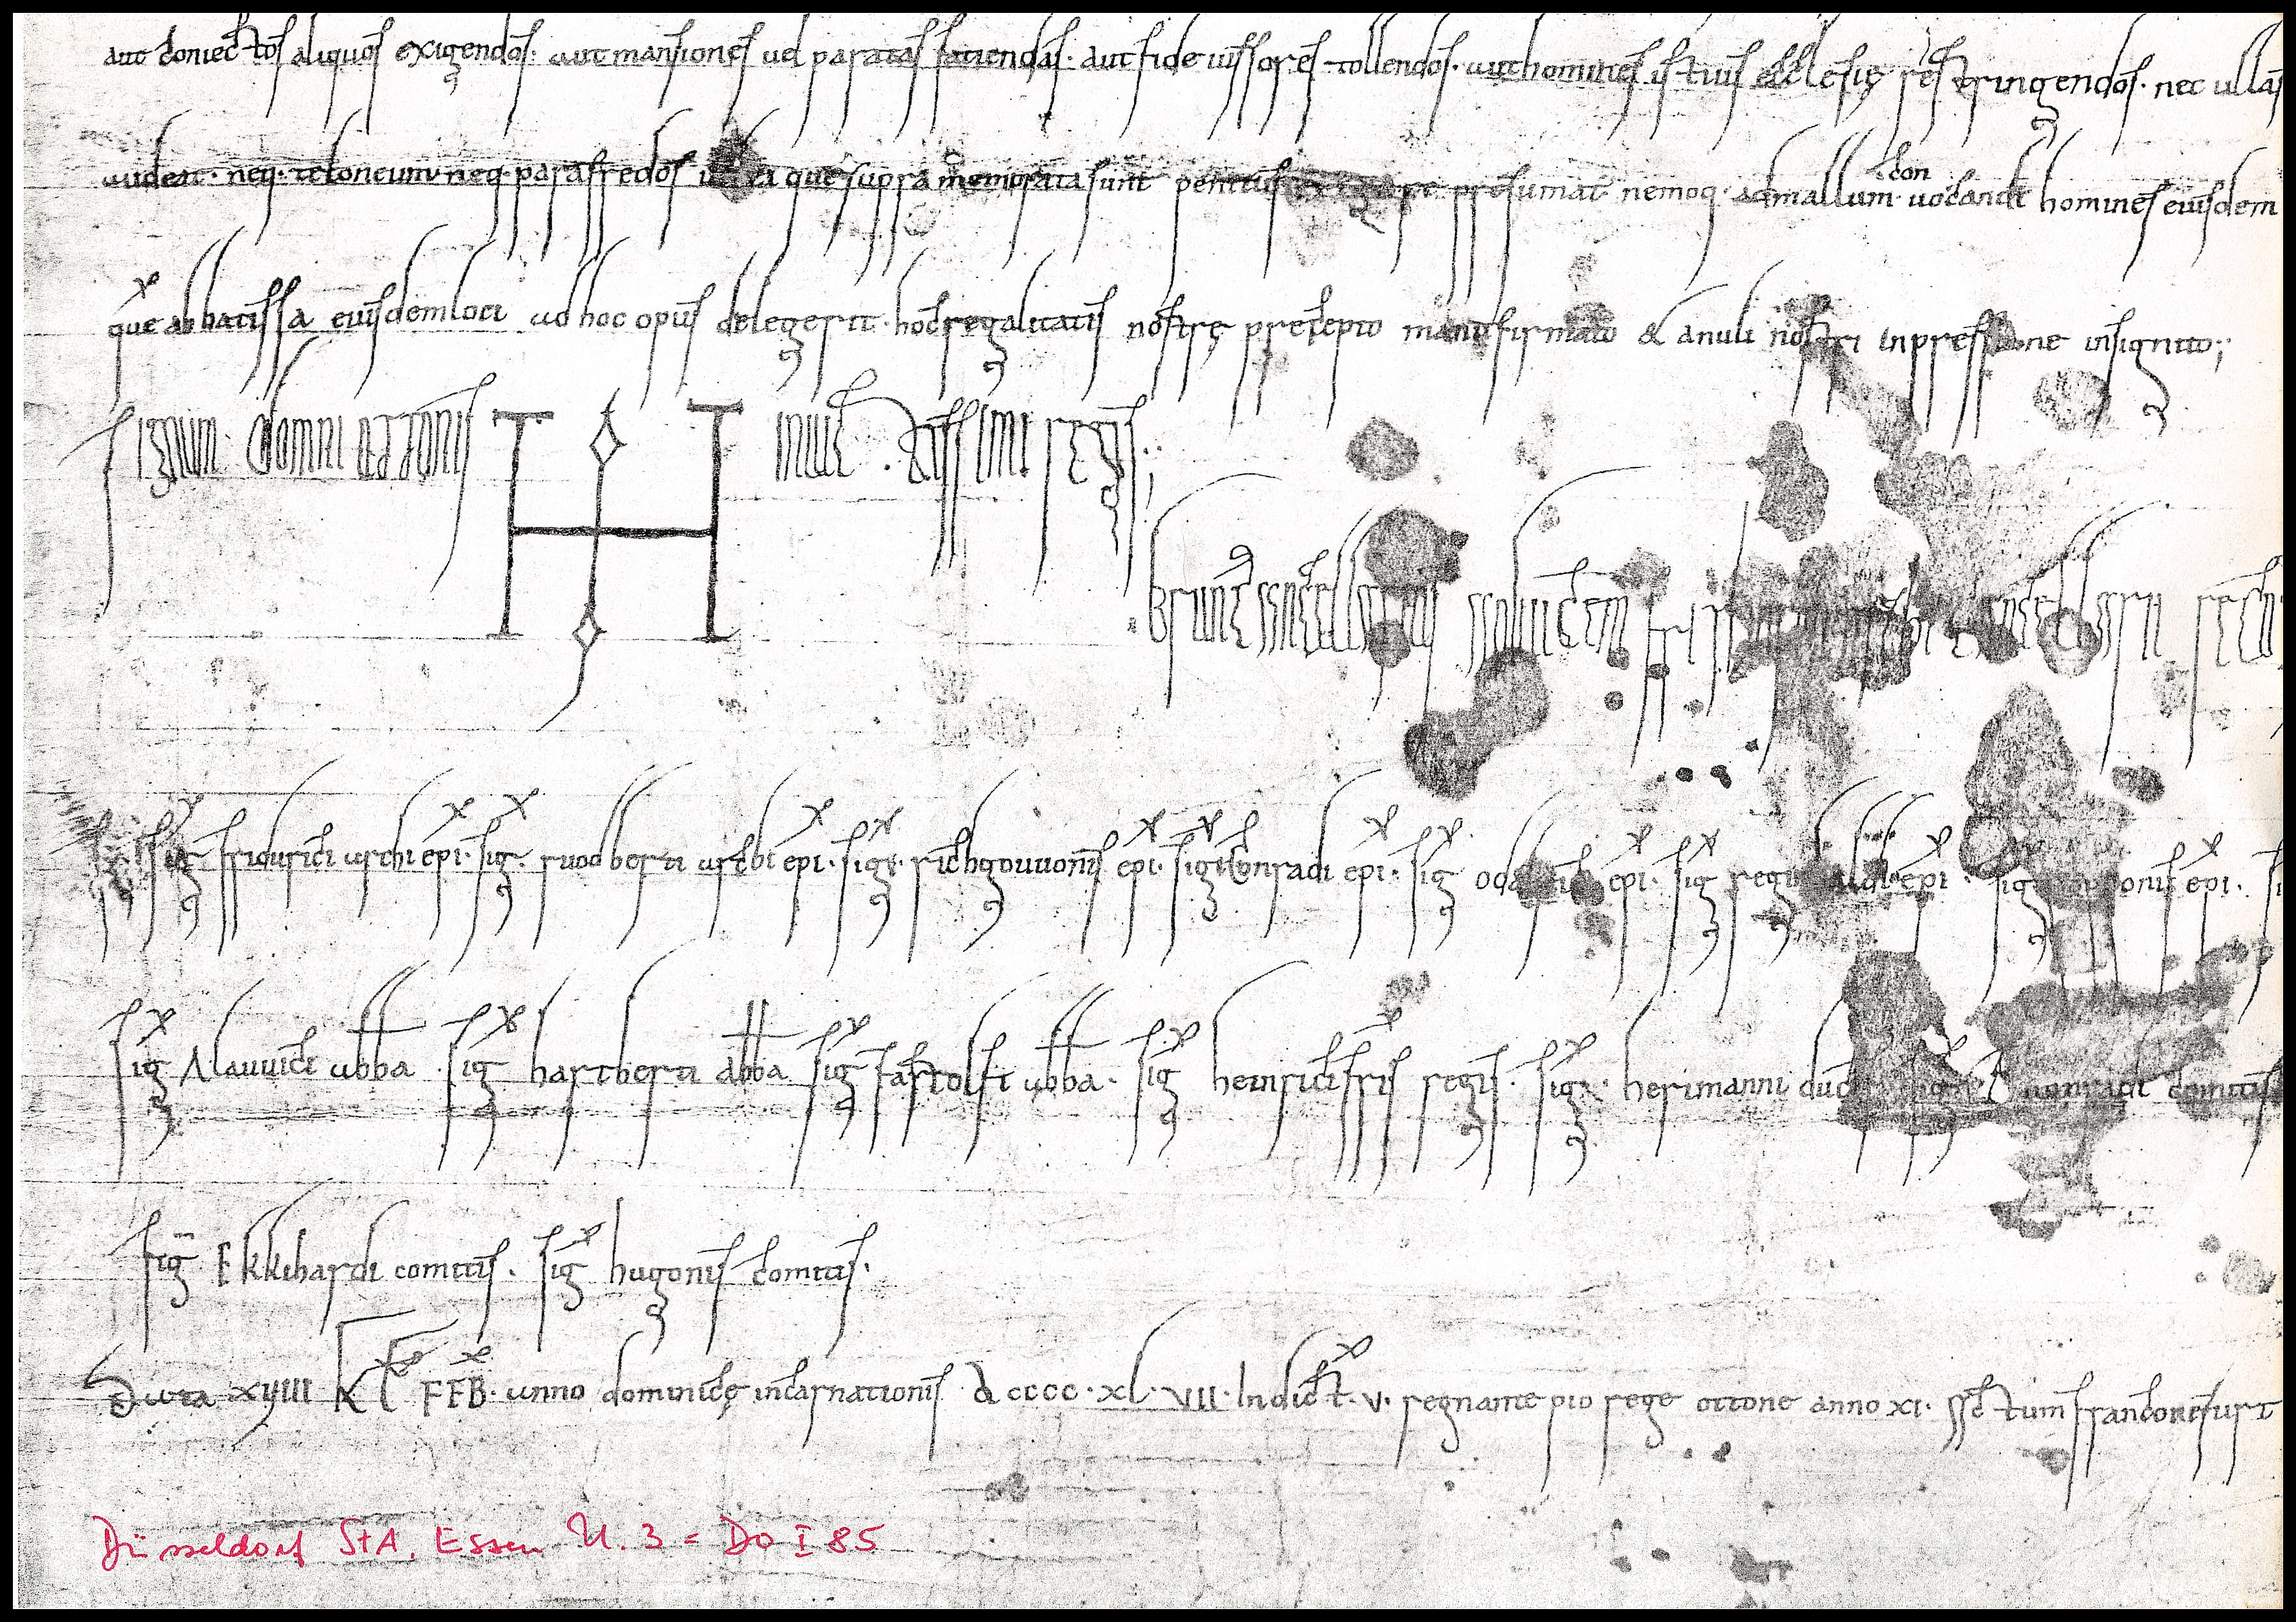 aut coniectos aliquos exigendos· aut mansiones vel paratas faciendas· aut fideiussores tollendos· aut homines istius ecclesię restringendos· nec ullas
audeat· neq· teloneum neq· parafredos ea que supra memorata sunt penitus presumat nemoq· ad mallum· con uocandi homines eiusdem
que abbatissa eiusdem loci ad hoc opus delegerit· hoc regalitatis nostrę precepto manu firmato & anuli nostri inpressione insignito;
Signum domni ottonis inuictissimi regis;
Brun cancellarius aduicem recog
Sig fridurici archiepi· sig· ruodberti archiepi· sig· richgouuonis epi· sig chonradi epi· sig odalrici epi· sig regi epi· sig popponis epi·
sig Alauuici abba· sig hartberti abba sig fartolfi abba· sig heinrici fris regis· sig· herimanni ducis chuonradi comitis
sig Ekkihardi comitis· sig hugonis comitis·
Data xviiii kl FEB· anno dominicę incarnationis dcccc·xl·vii· Indict· v· regnante pio rege ottone anno xi· actum franconefurt
Düsseldorf StA, Essen U. 3 = DO I 85